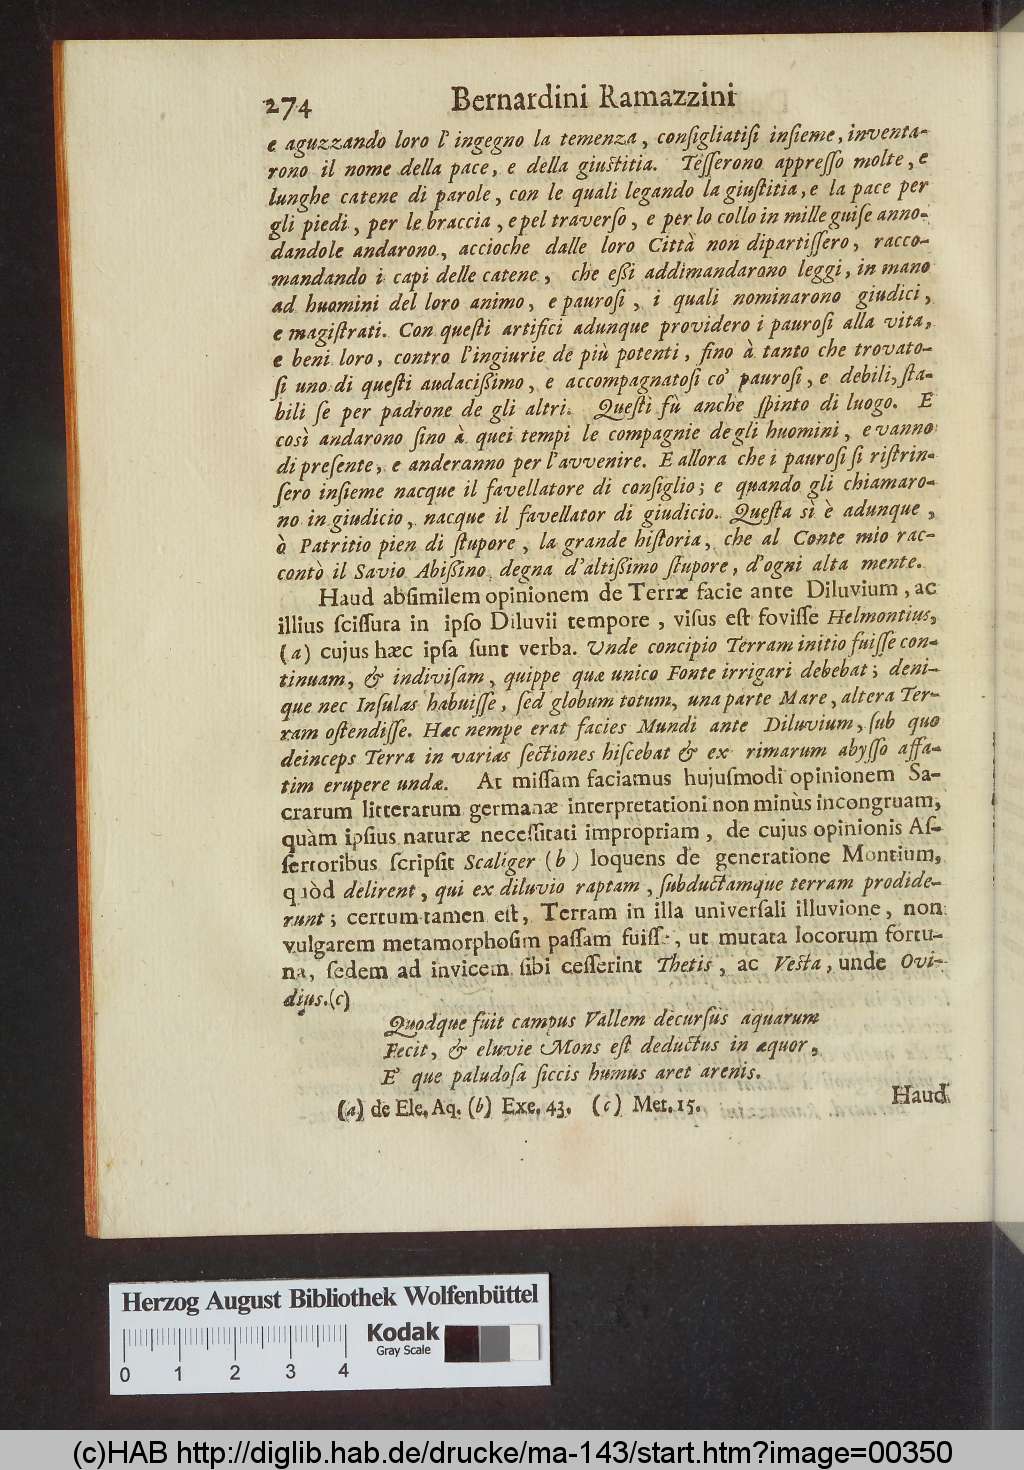 274 Bernardini Ramazzini
e aguzzando loro l'ingegno la temenza, conſigliatiſi inſieme, inventa-
rono il nome della pace, e della giuſtitia. Teſſerono appreſſo molte, e
lunghe catene di parole, con le quali legando la giuſtitia, e la pace per
gli piedi, per le braccia, e pel traverſo, e per lo collo in mille guiſe anno-
dandole andarono, accioche dalle loro Città non dipartiſſero, racco-
mandando i capi delle catene, che eßi addimandarono leggi, in mano
ad huomini del loro animo, e pauroſi, i quali nominarono giudici,
e magiſtrati. Con queſti artifici adunque providero i pauroſi alla vita,
e beni loro, contro l'ingiurie de più potenti, fino à tanto che trovato-
ſi uno di queſti audacißimo, e accompagnatoſi co' pauroſi, e debili, ſta-
bili ſe per padrone de gli altri. Queſti fù anche ſpinto di luogo. E
così andarono ſino à quei tempi le compagnie de gli huomini, e vanno
di preſente, e anderanno per l'avvenire. E allora che i pauroſi ſi riſtrin-
ſero inſieme nacque il favellatore di conſiglio; e quando gli chiamaro-
no in giudicio, nacque il favellator di giudicio. Queſta sì è adunque,
ò Patritio pien di ſtupore, la grande hiſtoria, che al Conte mio rac-
contò il Savio Abißino degna d'altißimo ſtupore, d'ogni alta mente.
Haud abſimilem opinionem de Terræ facie ante Diluvium, ac
illius ſciſſura in ipſo Diluvii tempore, viſus eſt foviſſe Helmontius,
(a) cujus hæc ipſa ſunt verba. Unde concipio Terram initio fuiſſe con-
tinuam, & indiviſam, quippe quæ unico Fonte irrigari debebat; deni-
que nec Inſulas habuiſſe, ſed globum totum, una parte Mare, altera Ter-
ram oſtendiſſe. Hæc nempe erat facies Mundi ante Diluvium, ſub quo
deinceps Terra in varias ſectiones hiſcebat & ex rimarum abyſſo affa-
tim erupere undæ. At miſſam faciamus hujuſmodi opinionem Sa-
crarum litterarum germanæ interpretationi non minùs incongruam,
quàm ipſius naturæ neceſſitati impropriam, de cujus opinionis Aſ-
ſertoribus ſcripſit Scaliger (b) loquens de generatione Montium,
quòd delirent, qui ex diluvio raptam, ſubductamque terram prodide-
runt; certum tamen eſt, Terram in illa univerſali illuvione, non
vulgarem metamorphoſim paſſam fuiſſe, ut mutata locorum fortu-
na, ſedem ad invicem ſibi ceſſerint Thetis, ac Veſta, unde Ovi-
dius.(c)
Quodque fuit campus Vallem decurſus aquarum
Fecit, & eluvie Mons eſt deductus in æquor,
E' que paludoſa ſiccis humus aret arenis.
(a) de Ele. Aq. (b) Exe. 43. (c) Met. 15.
Haud
Herzog August Bibliothek Wolfenbüttel
Kodak
Gray Scale
0 1 2 3 4
(c)HAB http://diglib.hab.de/drucke/ma-143/start.htm?image=00350